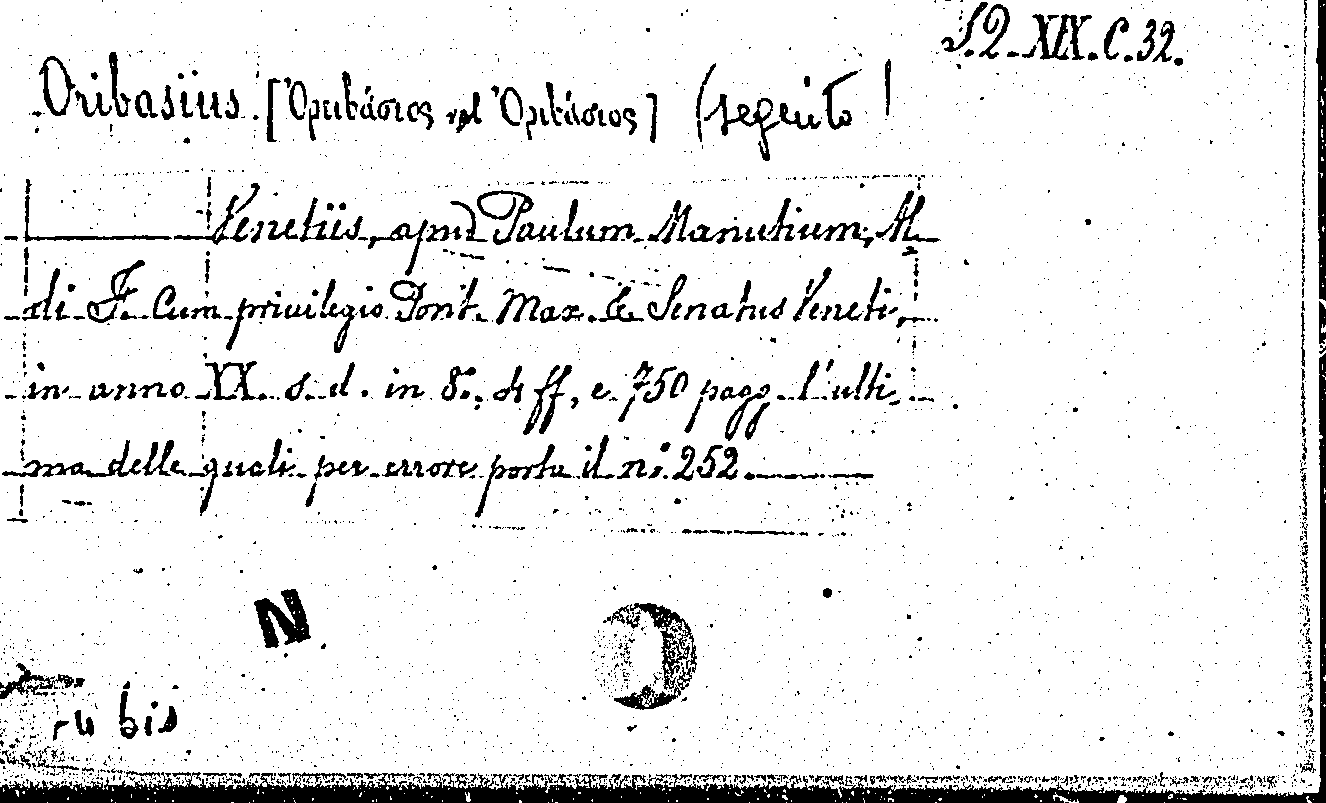 S.2.XIX.C.32.
Oribasius. [Ὀρειβάσιος vel Ὀριβάσιος] (seguito
Venetiis, apud Paulum Manutium, Al-
di F. Cum privilegio Pont. Max. & Senatus Veneti,
in anno XX. s. d. in 8º. di ff, e 750 pagg. l'ulti-
ma delle quali per errore porta il nº. 252.
N
bis